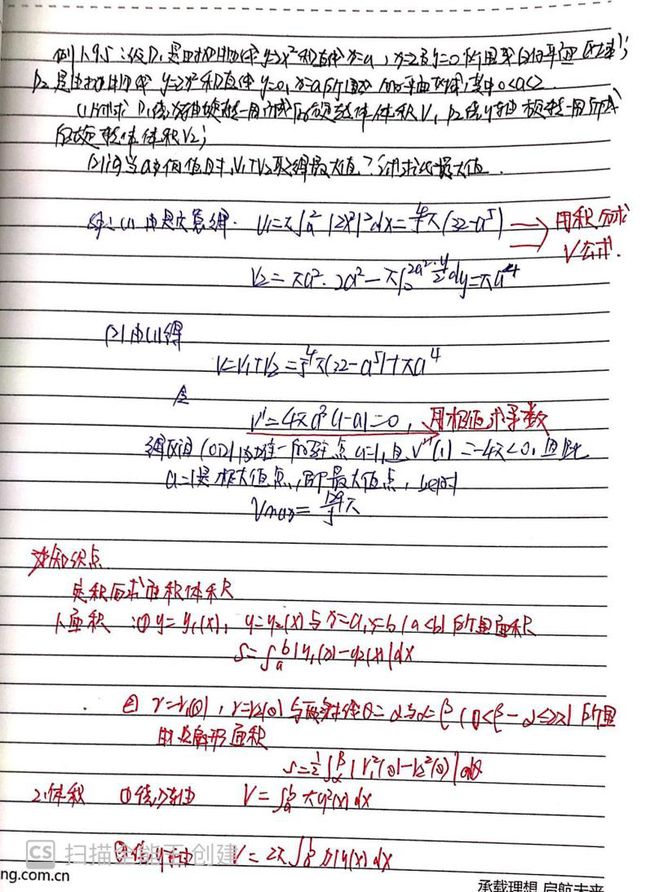 例1.95:设D₁是由抛物线y=2x²和直线x=a,x=2及y=0所围成的平面区域;
D₂是由抛物线y=2x²和直线y=0,x=a所围成的平面区域,其中0<a<2.
(1)试求D₁绕x轴旋转一周所成的旋转体体积V₁,D₂绕y轴旋转一周所成
的旋转体体积V₂;
(2)问当a为何值时,V₁+V₂取得最大值?试求此最大值.
(1)由题意得. V₁=π∫ₐ²(2x²)²dx=4/5π(32-a⁵) 用积分求
V公式.
V₂=πa²·2a²-π∫₀^{2a²} y/2 dy=πa⁴
(2)由(1)得
V=V₁+V₂=4/5π(32-a⁵)+πa⁴
令
V'=4πa³(1-a)=0, 用极值求导数
得区间(0,2)内唯一的驻点a=1,且V''(1)=-4π<0,因此
a=1是极大值点,即最大值点,此时
Vmax=129/5π
知识点
定积分求面积体积
1.面积:①y=y₁(x),y=y₂(x)与x=a,x=b(a<b)所围面积
S=∫ₐᵇ|y₁(x)-y₂(x)|dx
② r=r₁(θ),r=r₂(θ)与两射线θ=α与α=β(0<β-α≤2π)所围
的曲边扇形面积
S=1/2∫_α^β|r₁²(θ)-r₂²(θ)|dθ
2.体积 ①绕x轴 V=∫ₐᵇπy²(x)dx
②绕y轴 V=2π∫ₐᵇx|y(x)|dx
CS 扫描全能王 创建
ng.com.cn
承载理想 启航未来